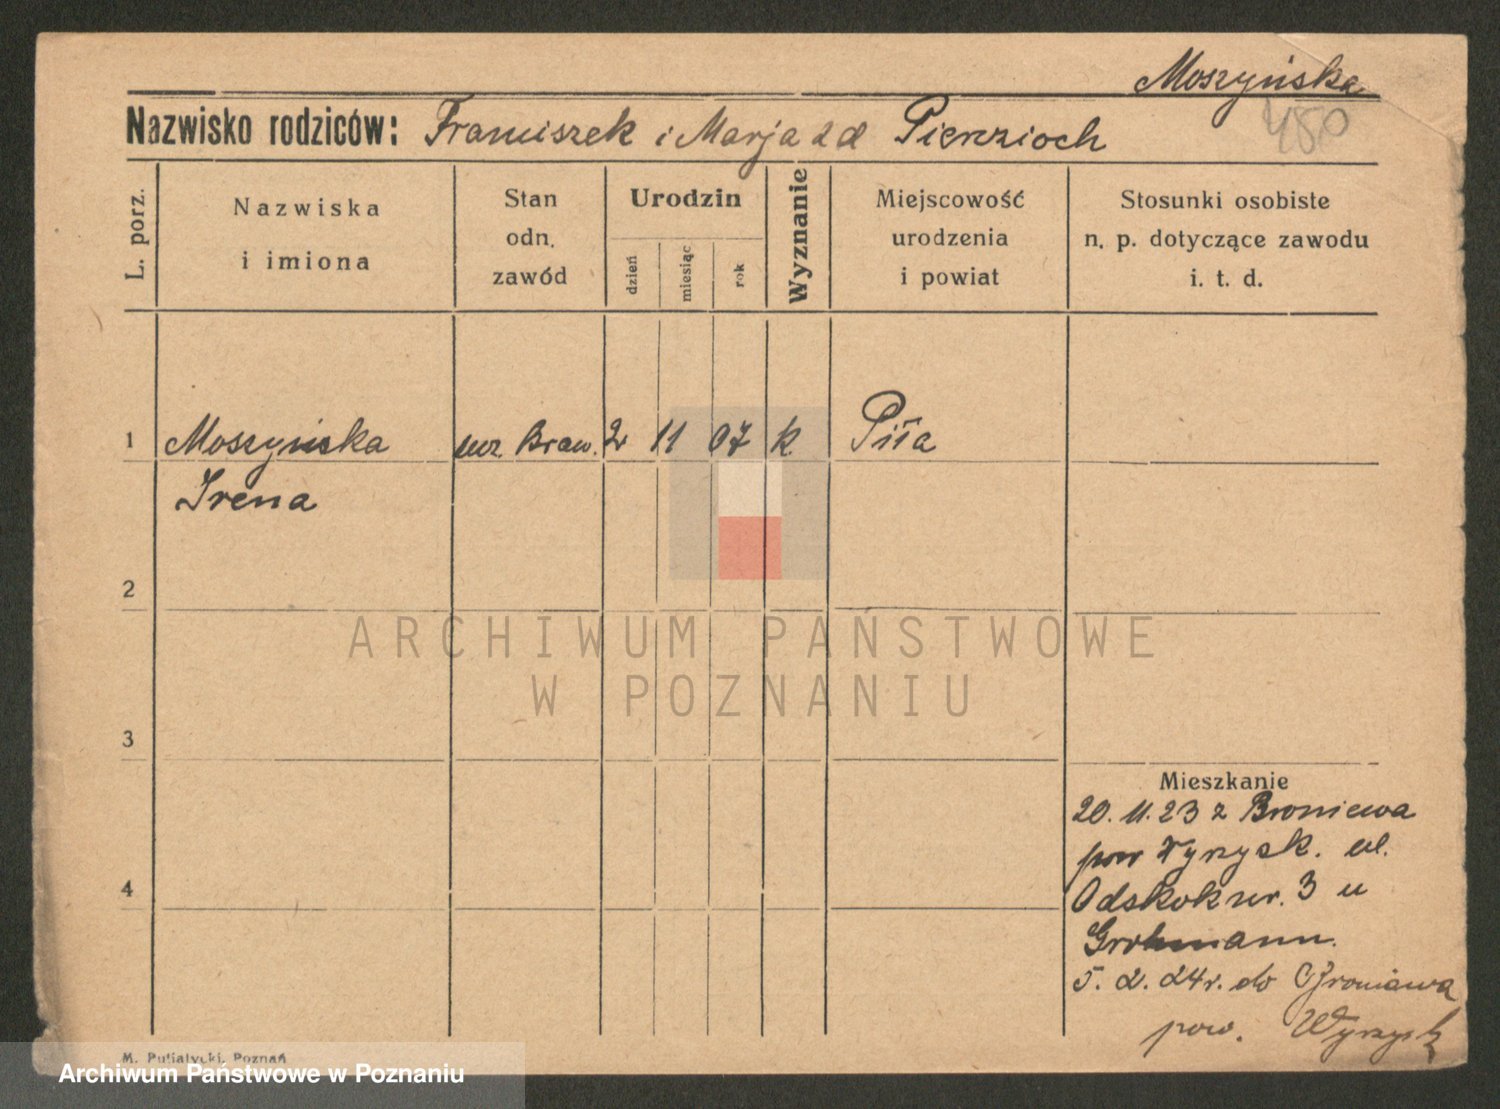 Moszyńska
480
Nazwisko rodziców: Franciszek i Marja z d Pierzioch
L. porz.
Nazwiska
i imiona
Stan
odn.
zawód
Urodzin
dzień
miesiąc
rok
Wyznanie
Miejscowość
urodzenia
i powiat
Stosunki osobiste
n. p. dotyczące zawodu
i. t. d.
1 Moszyńska 2 11 07 k. Piła
Irena
2
3
4
ARCHIWUM PAŃSTWOWE
W POZNANIU
Mieszkanie
20. 11. 23 z Broniewa
pow Wyrzysk. ul.
Odskok nr. 3 u
Grohmann.
5. 2. 24 r. do Broniewa
pow. Wyrzysk
M. Putiatycki, Poznań
Archiwum Państwowe w Poznaniu